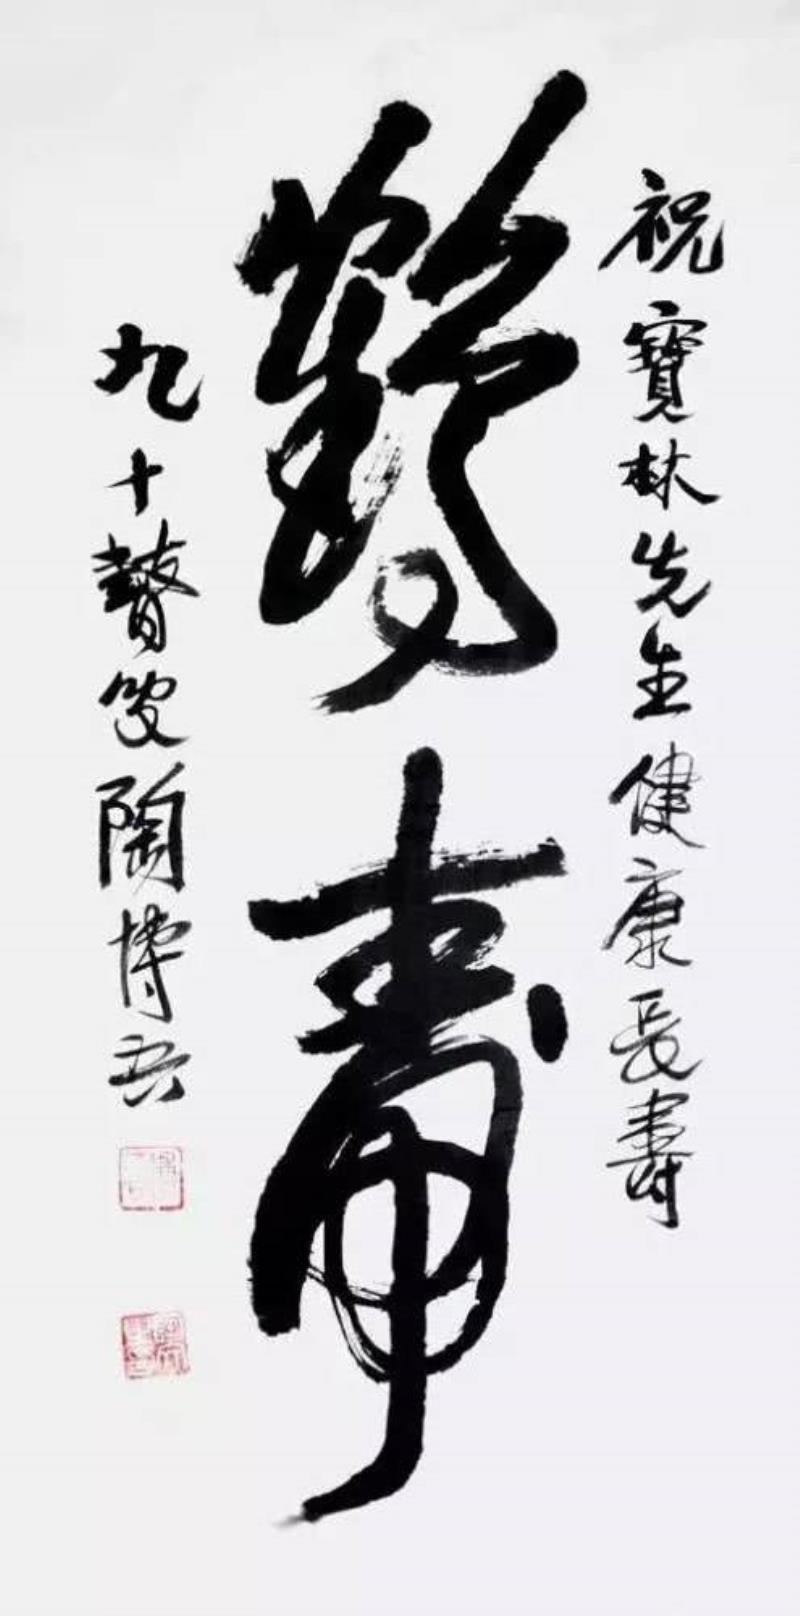 祝寶林先生健康長壽
鶴壽
九十瞽叟陶博吾